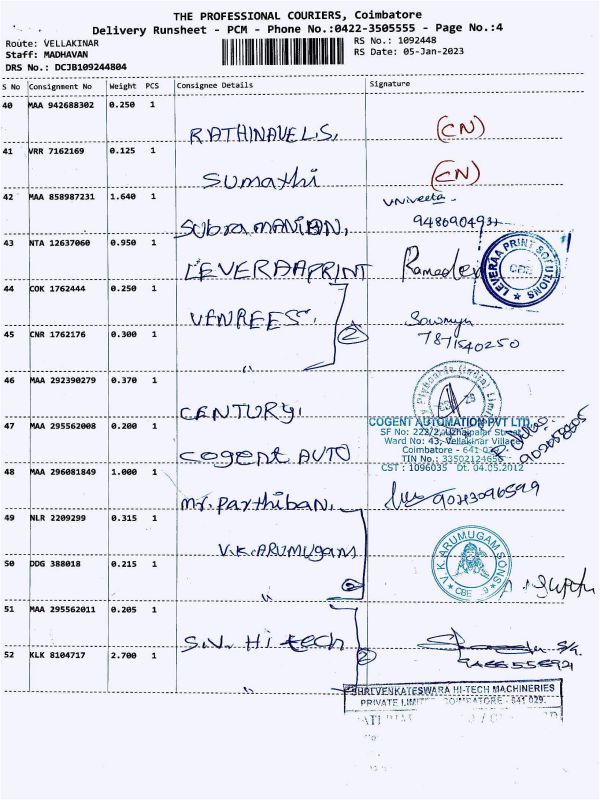 THE PROFESSIONAL COURIERS, Coimbatore
Delivery Runsheet - PCM - Phone No.:0422-3505555 - Page No.:4
Route: VELLAKINAR RS No.: 1092448
Staff: MADHAVAN RS Date: 05-Jan-2023
DRS No.: DCJB109244804
S No Consignment No Weight PCS Consignee Details Signature
40 MAA 942688302 0.250 1
RATHINAVEL.S, (CN)
41 VRR 7162169 0.125 1
Sumathi (CN)
42 MAA 858987231 1.640 1
Subramanion,
43 NTA 12637060 0.950 1
LEVERAAPRINT
LEVERAA PRINT SOLUTIONS
CBE
44 COK 1762444 0.250 1
VANREES, 2
45 CNR 1762176 0.300 1
" Sowmya
7871540250
46 MAA 292390279 0.370 1
CENTURY,
47 MAA 295562008 0.200 1
Cogent AUTO
COGENT AUTOMATION PVT LTD.
Ward No: 43, Vellakinar
Coimbatore - 641
CST : 1096035 Dt. 04.05.2012
48 MAA 296081849 1.000 1
Mr. Parthiban,
49 NLR 2209299 0.315 1
V.K.ARUMUGAM
V.K.ARUMUGAM SONS
CBE
50 DDG 388018 0.215 1
" 2
51 MAA 295562011 0.205 1
S.V. Hi tech 2
52 KLK 8104717 2.700 1
"
SHRI VENKATESWARA HI-TECH MACHINERIES
PRIVATE LIMITED, COIMBATORE - 641 029.